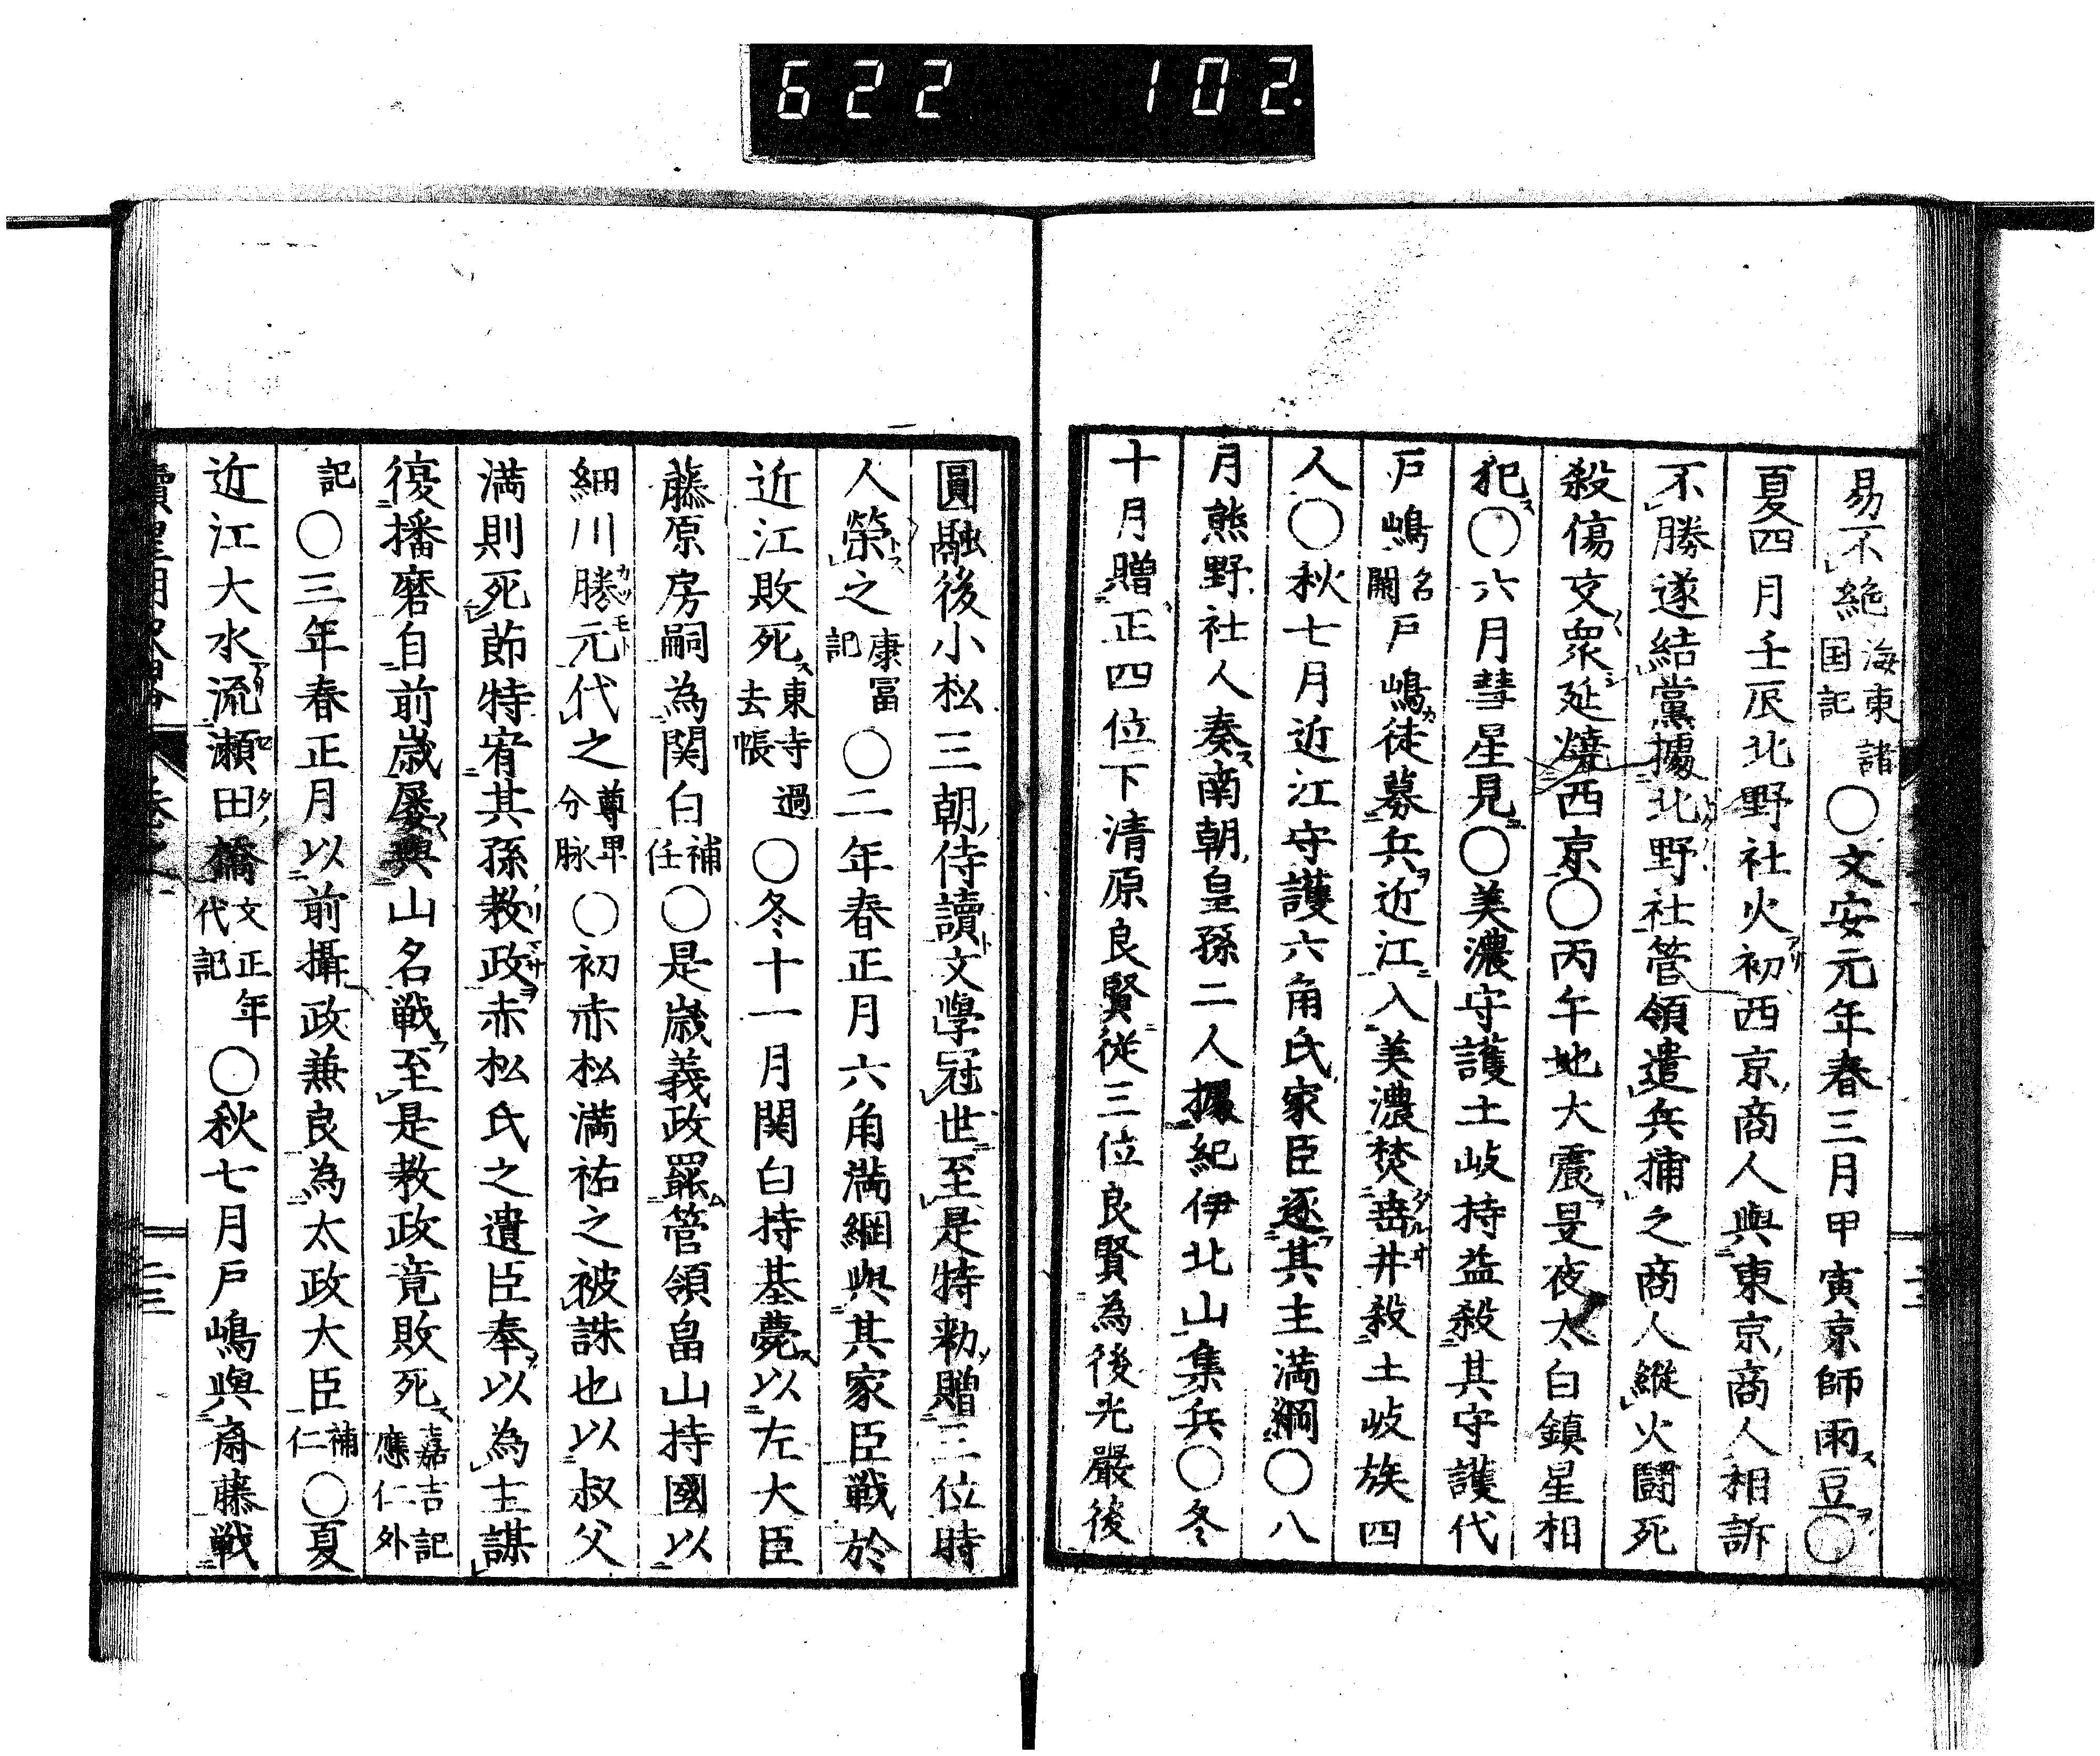 622 102.
易不絶海東諸国記〇文安元年春三月甲寅京師雨豆〇
夏四月壬辰北野社火初西京商人與東京商人相訴
不勝遂結黨據北野社管領遣兵捕之商人縱火鬪死
殺傷支衆延燒西京〇丙午地大震是夜太白鎮星相
犯〇六月彗星見〇美濃守護土岐持益殺其守護代
戸嶋名闕戸嶋徒募兵近江入美濃焚垂井殺土岐族四
人〇秋七月近江守護六角氏家臣逐其主満綱〇八
月熊野社人奏南朝皇孫二人據紀伊北山集兵〇冬
十月贈正四位下清原良賢従三位良賢為後光嚴後
圓融後小松三朝侍讀文學冠世至是特勅贈三位時
人榮之康冨記〇二年春正月六角満綱與其家臣戰於
近江敗死東寺過去帳〇冬十一月関白持基薨以左大臣
藤原房嗣為関白補任〇是歳義政罷管領畠山持國以
細川勝元代之尊卑分脉〇初赤松満祐之被誅也以叔父
満則死節特宥其孫教政赤松氏之遺臣奉以為主謀
復播磨自前歳屡與山名戦至是教政竟敗死嘉吉記應仁外
記〇三年春正月以前攝政兼良為太政大臣補仁〇夏
近江大水流瀬田橋文正年代記〇秋七月戸嶋與齋藤戦
二三